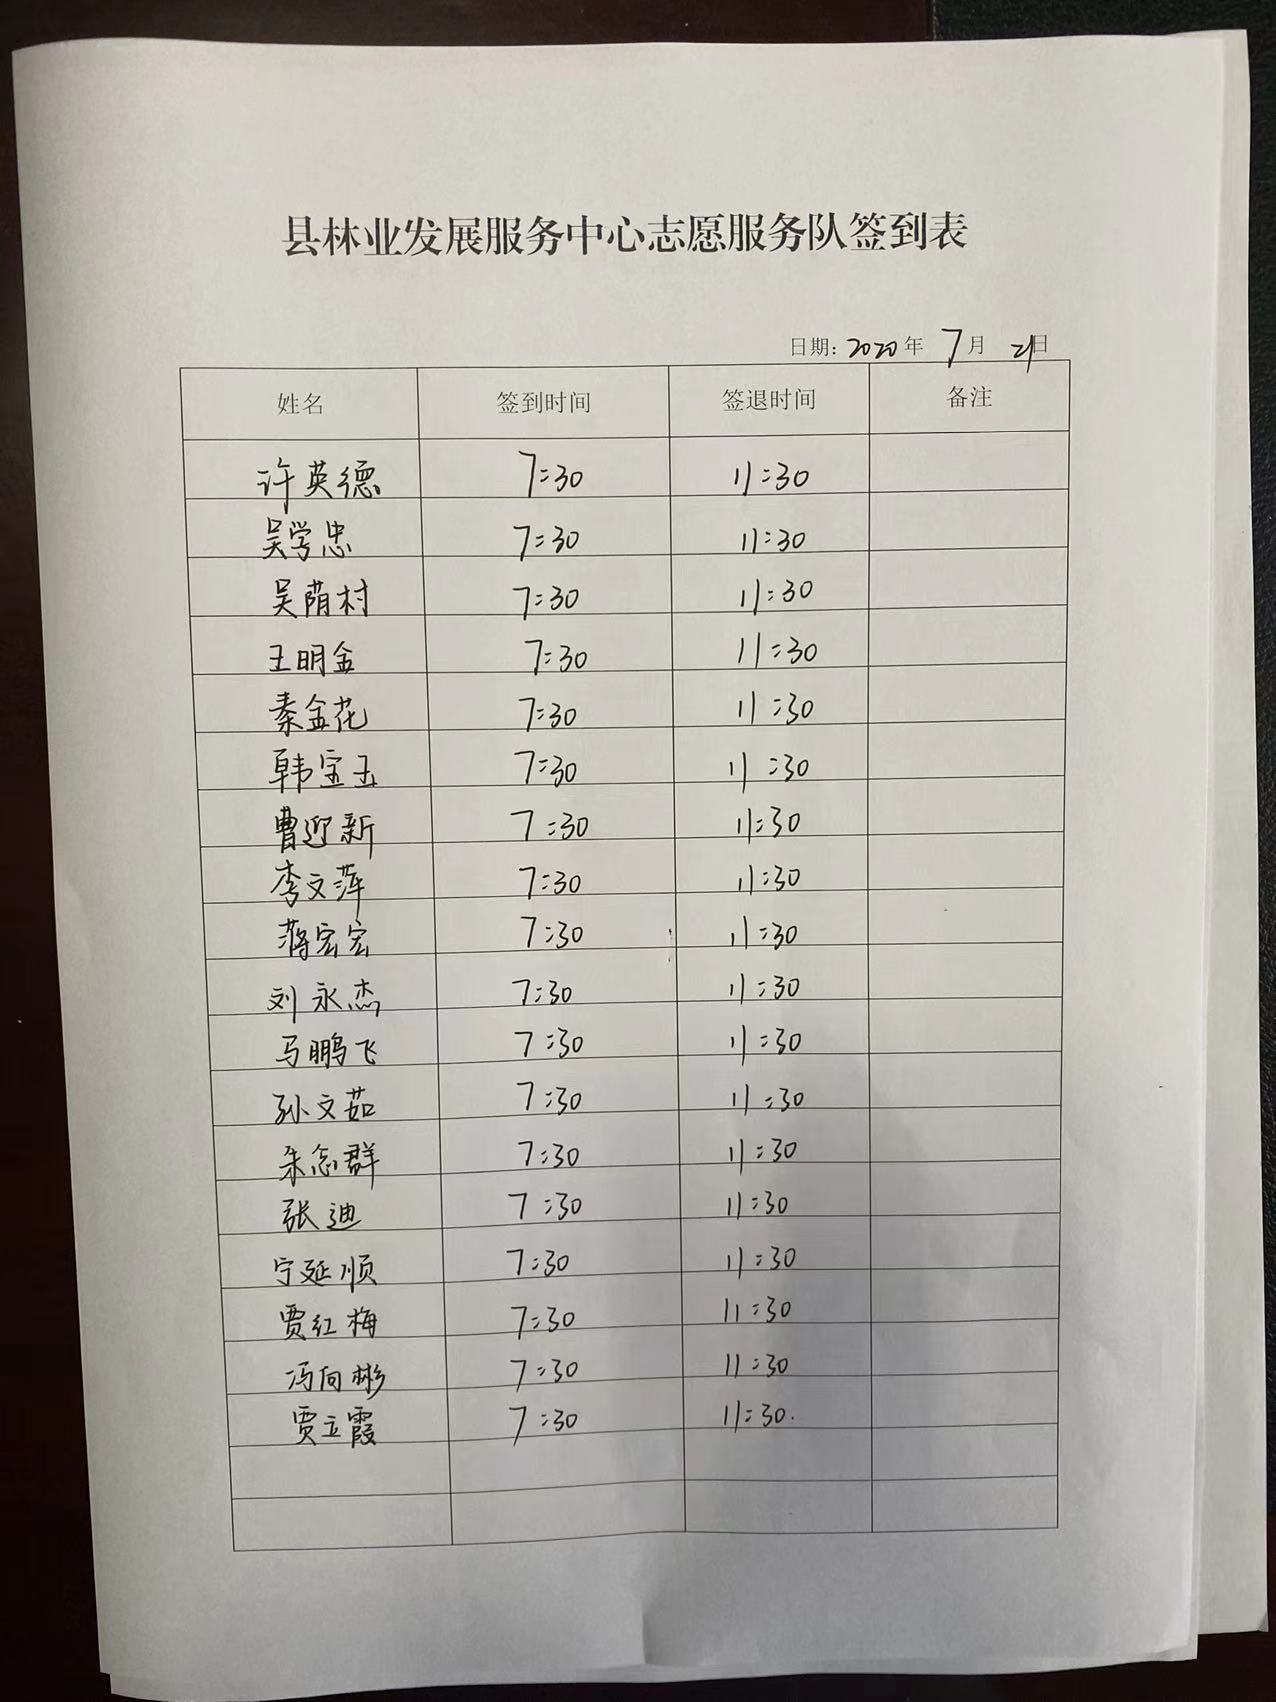 县林业发展服务中心志愿服务队签到表
日期：2020年 7月 21日
姓名 签到时间 签退时间 备注
许英德 7:30 11:30
吴学忠 7:30 11:30
吴荫村 7:30 11:30
王明金 7:30 11:30
秦金花 7:30 11:30
韩宝玉 7:30 11:30
曹迎新 7:30 11:30
李文萍 7:30 11:30
蒋宏宏 7:30 11:30
刘永杰 7:30 11:30
马鹏飞 7:30 11:30
孙文茹 7:30 11:30
朱念群 7:30 11:30
张迪 7:30 11:30
宁延顺 7:30 11:30
贾红梅 7:30 11:30
冯向彬 7:30 11:30
贾立霞 7:30 11:30.